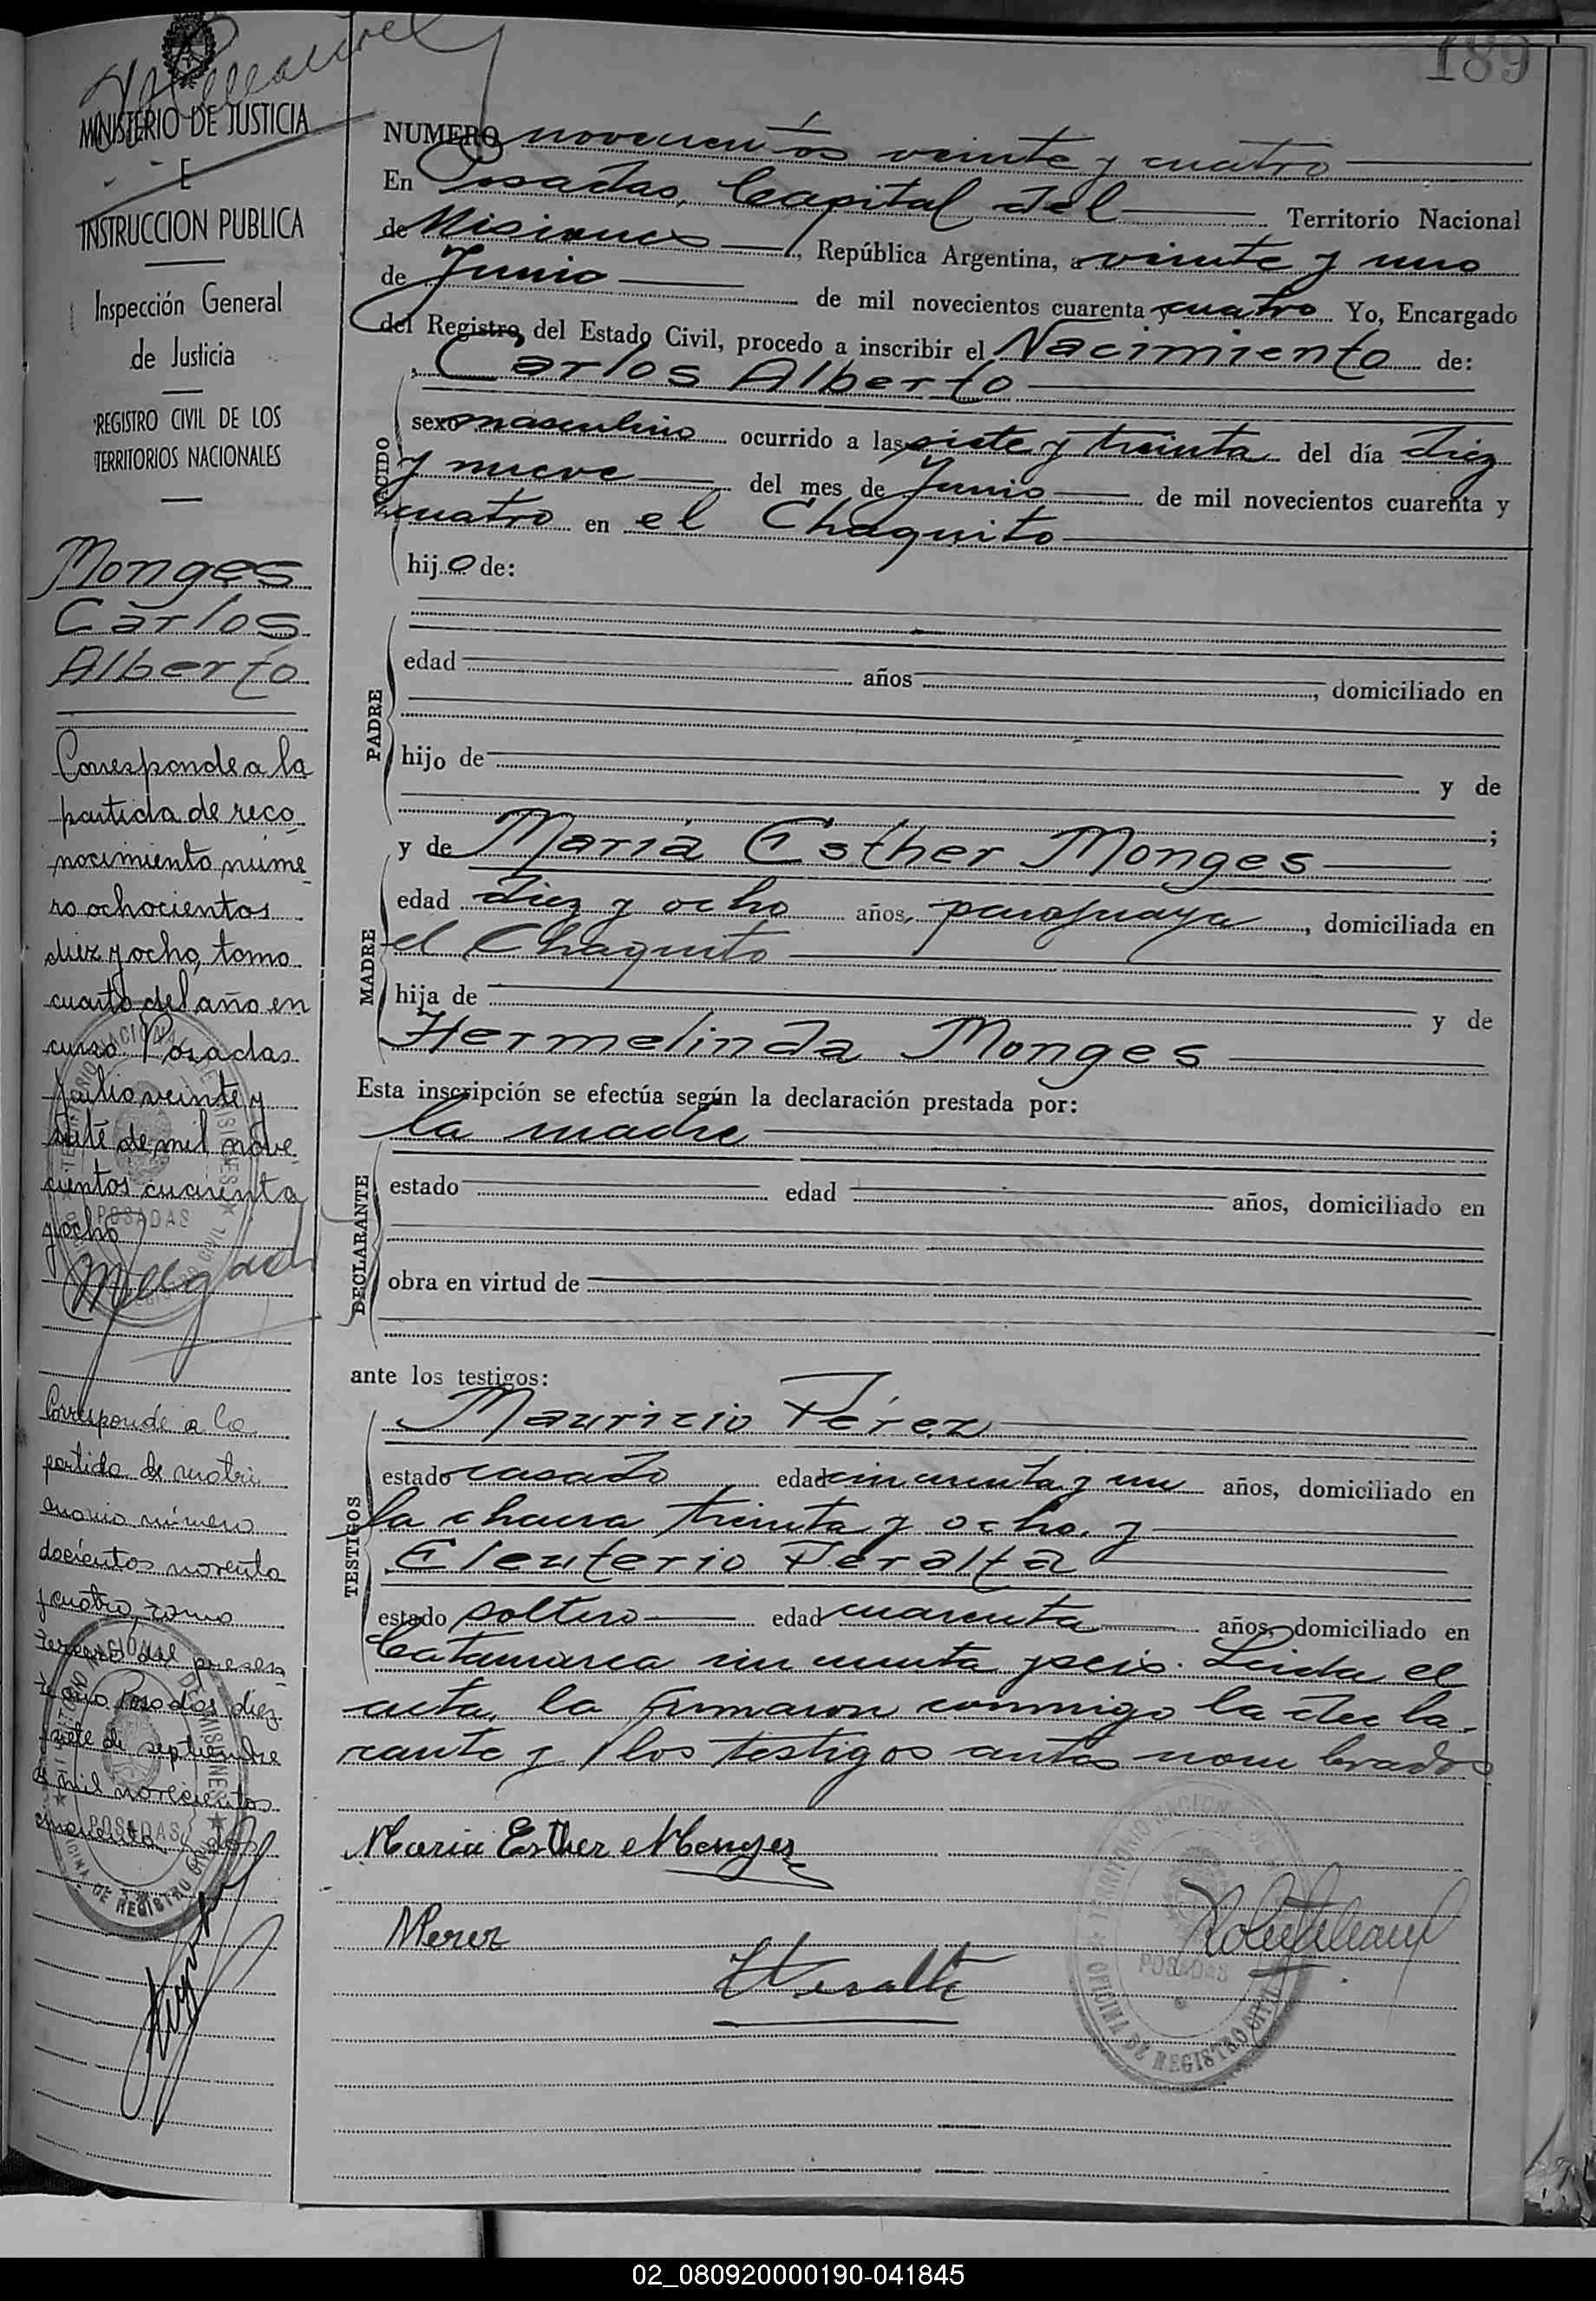 189
MINISTERIO DE JUSTICIA
E
INSTRUCCION PUBLICA
Inspección General
de Justicia
REGISTRO CIVIL DE LOS
TERRITORIOS NACIONALES
Monges
Carlos
Alberto
Corresponde a la
partida de reco
nocimiento núme
ro ochocientos
diez y ocho, tomo
cuarto del año en
curso. Posadas
Julio veinte y
siete de mil nove
cientos cuarenta
y ocho
Corresponde a la
partida de matri
monio número
docientos noventa
y cuatro, tomo
tercero del presen
te año Posadas diez
y siete de septiembre
de mil novecientos
NUMERO novecientos veinte y cuatro
En Posadas, Capital del Territorio Nacional
de Misiones, República Argentina, a veinte y uno
de Junio de mil novecientos cuarenta y cuatro Yo, Encargado
del Registro del Estado Civil, procedo a inscribir el Nacimiento de:
Carlos Alberto
NACIDO
sexo masculino ocurrido a las siete y treinta del día diez
y nueve del mes de Junio de mil novecientos cuarenta y
cuatro en el Chaquito
hijo de:
PADRE
edad años , domiciliado en
hijo de y de
;
MADRE
y de María Esther Monges
edad diez y ocho años, paraguaya, domiciliada en
el Chaquito
hija de y de
Hermelinda Monges
Esta inscripción se efectúa según la declaración prestada por:
la madre
DECLARANTE
estado edad años, domiciliado en
obra en virtud de
ante los testigos:
TESTIGOS
Mauricio Pérez
estado casado edad cincuenta y un años, domiciliado en
la chacra treinta y ocho. y
Eleuterio Peralta
estado soltero edad cuarenta años, domiciliado en
Catamarca cincuenta y seis. Leida el
acta, la firmaron conmigo la decla-
rante y los testigos antes nombrados
Maria Esther Monges
MPerez
EPeralta
TERRITORIO NACIONAL DE MISIONES
POSADAS
OFICINA DE REGISTRO CIVIL
02_080920000190-041845